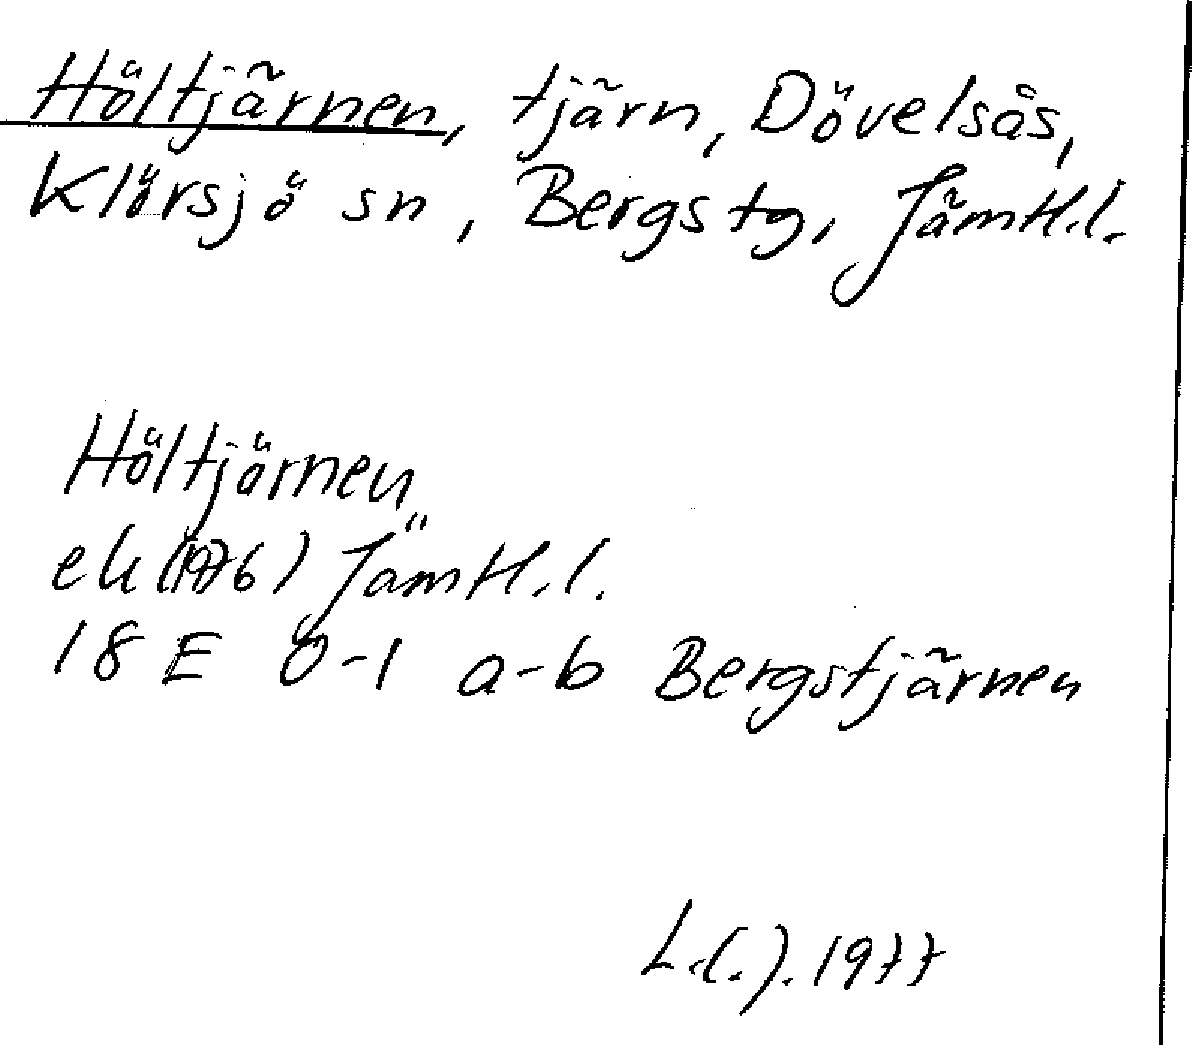 Höltjärnen, tjärn, Dövelsås,
Klörsjö sn, Bergs tg, Jämtl.l.
Höltjärnen
ek (1976) Jämtl.l.
18 E 0-1 a-b Bergstjärnen
L.(.). 1977